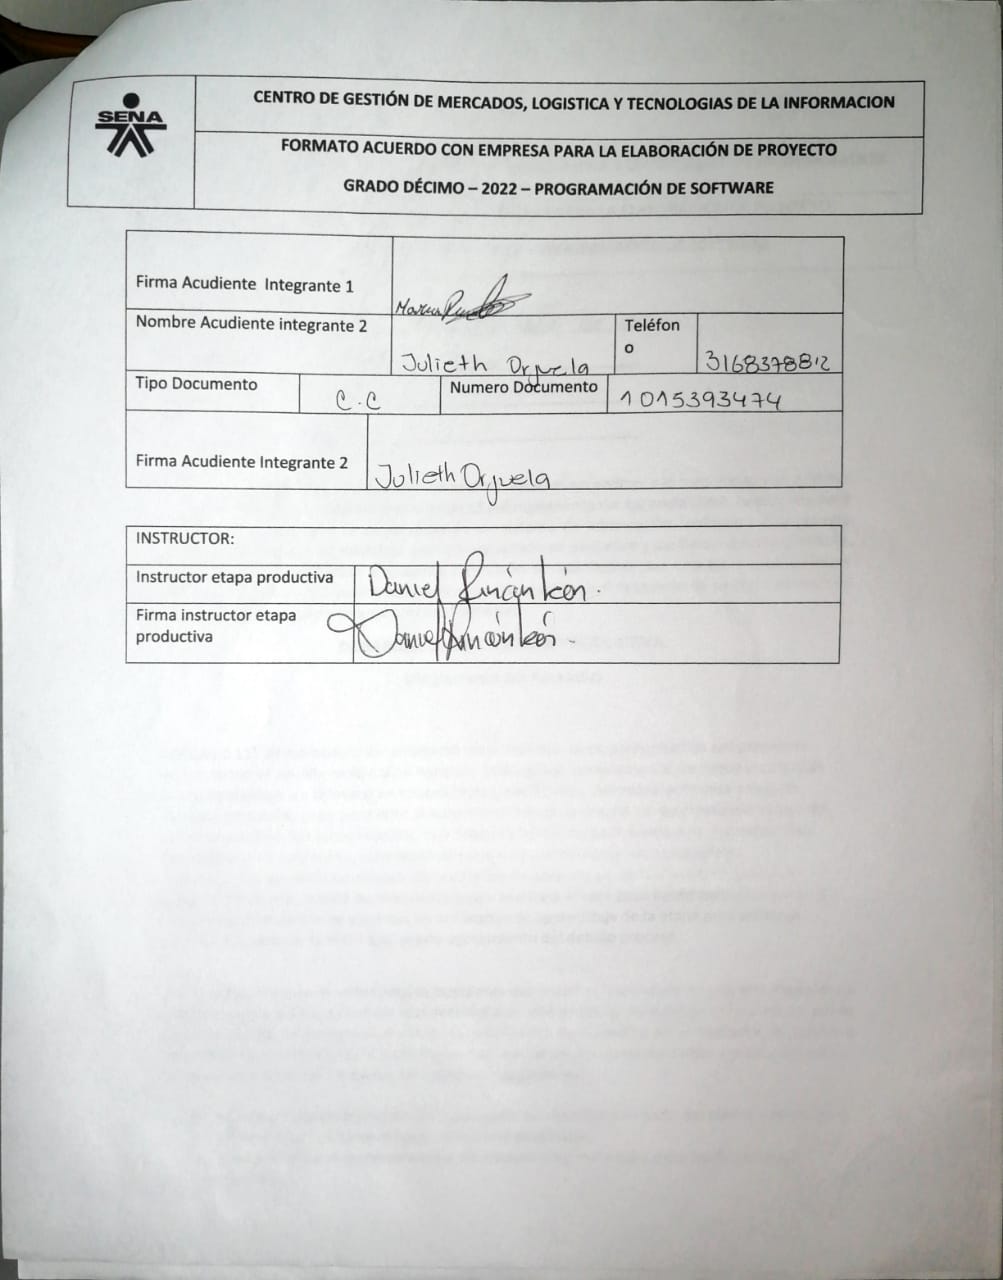 SENA
CENTRO DE GESTIÓN DE MERCADOS, LOGISTICA Y TECNOLOGIAS DE LA INFORMACION
FORMATO ACUERDO CON EMPRESA PARA LA ELABORACIÓN DE PROYECTO
GRADO DÉCIMO – 2022 – PROGRAMACIÓN DE SOFTWARE
Firma Acudiente Integrante 1
Nombre Acudiente integrante 2 Julieth Orjuela Teléfon
o 3168378812
Tipo Documento C.C Numero Documento 1015393474
Firma Acudiente Integrante 2 Julieth Orjuela
INSTRUCTOR:
Instructor etapa productiva Daniel Rincón León.
Firma instructor etapa
productiva Daniel Rincón León.